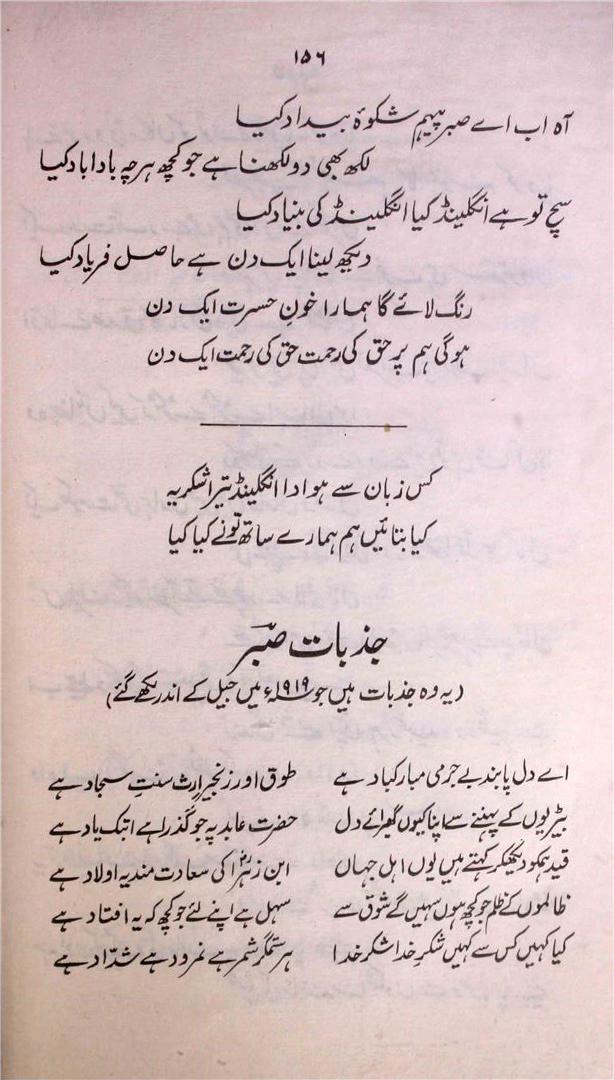 ۱۵۶
آہ اب اے صبر پیہم شکوۂ بیداد کیا
لکھ بھی دو لکھنا ہے جو کچھ ہر چہ بادا باد کیا
سچ تو ہے انگلینڈ کیا انگلینڈ کی بنیاد کیا
دیکھ لینا ایک دن ہے حاصل فریاد کیا
رنگ لائے گا ہمارا خونِ حسرت ایک دن
ہوگی ہم پر حق کی رحمت حق کی رحمت ایک دن
کس زبان سے ہو ادا انگلینڈ تیرا شکریہ
کیا بتائیں ہم ہمارے ساتھ تو نے کیا کیا
جذبات صبر
(یہ وہ جذبات ہیں جو ۱۹۱۹ء میں جیل کے اندر لکھے گئے)
اے دل پابند بے جرمی مبارکباد ہے طوق اور زنجیر ارث سنتِ سجاد ہے
بیڑیوں کے پہننے سے اپنا کیوں گھبرائے دل حضرت عابد پہ جو گذرا ہے ابتک یاد ہے
قید ہمکو دیکھکر کہتے ہیں یوں اہل جہاں ابن زہرا کی سعادت مند یہ اولاد ہے
ظالموں کے ظلم جو کچھ ہوں سہیں گے شوق سے سہل ہے اپنے لئے جو کچھ کہ یہ افتاد ہے
کیا کہیں کس سے کہیں شکرِ خدا شکر خدا ہر ستمگر شمر ہے نمرود ہے شدّاد ہے